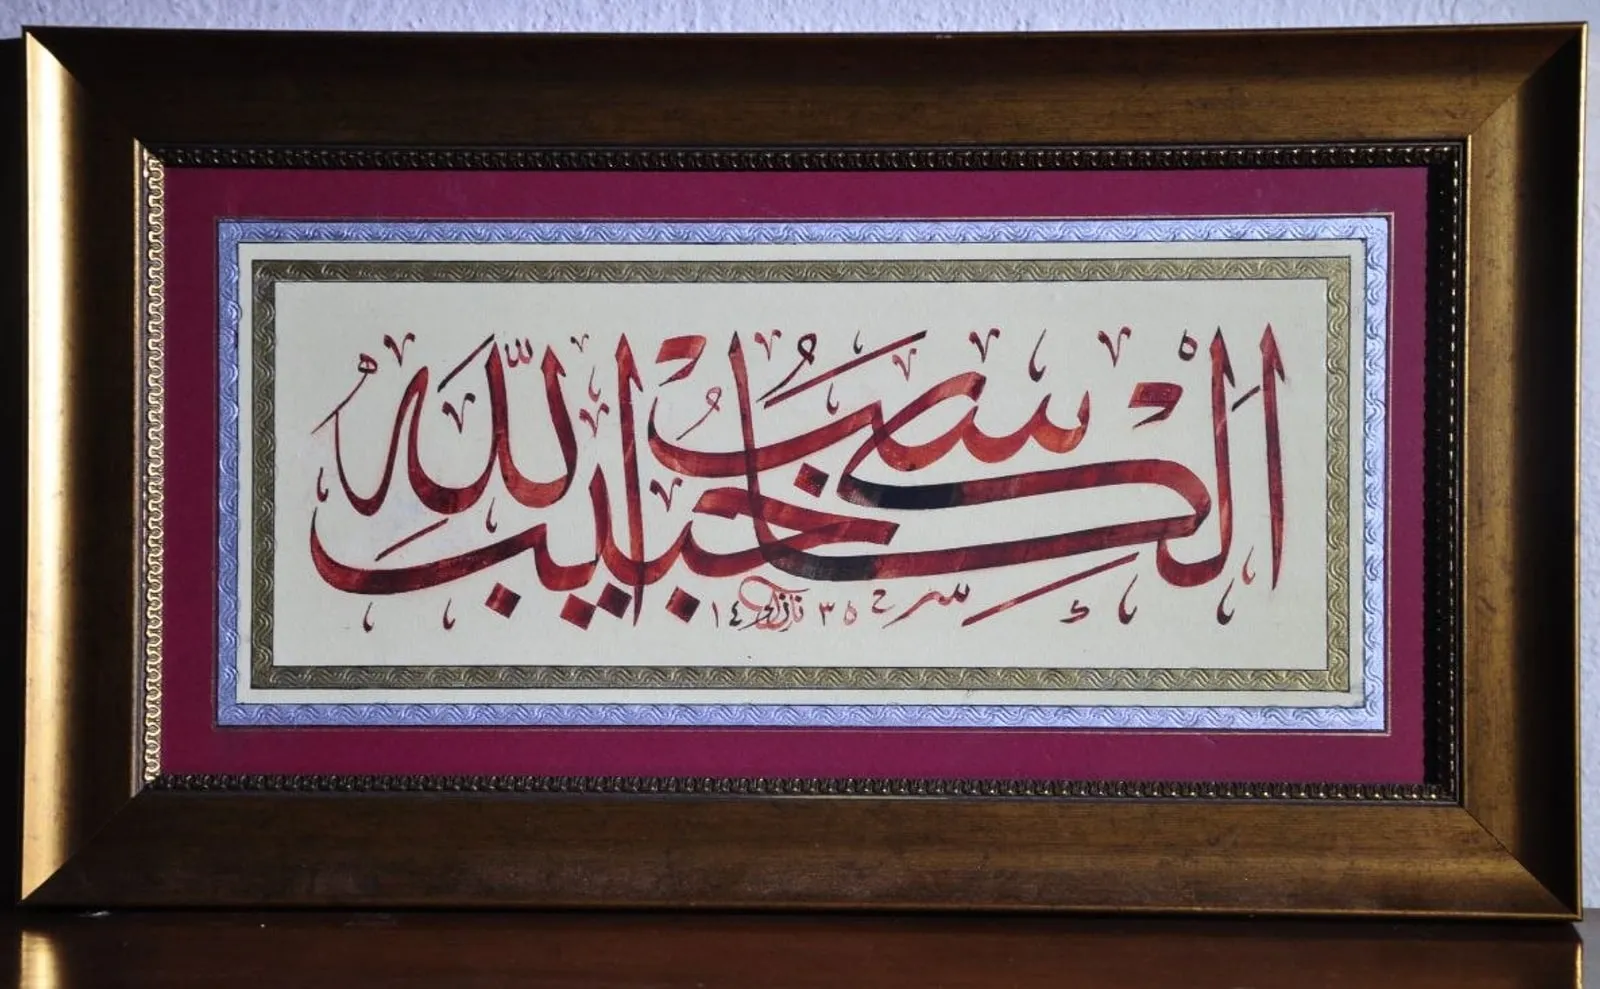 الكاسب حبيب الله
١٤٣٥